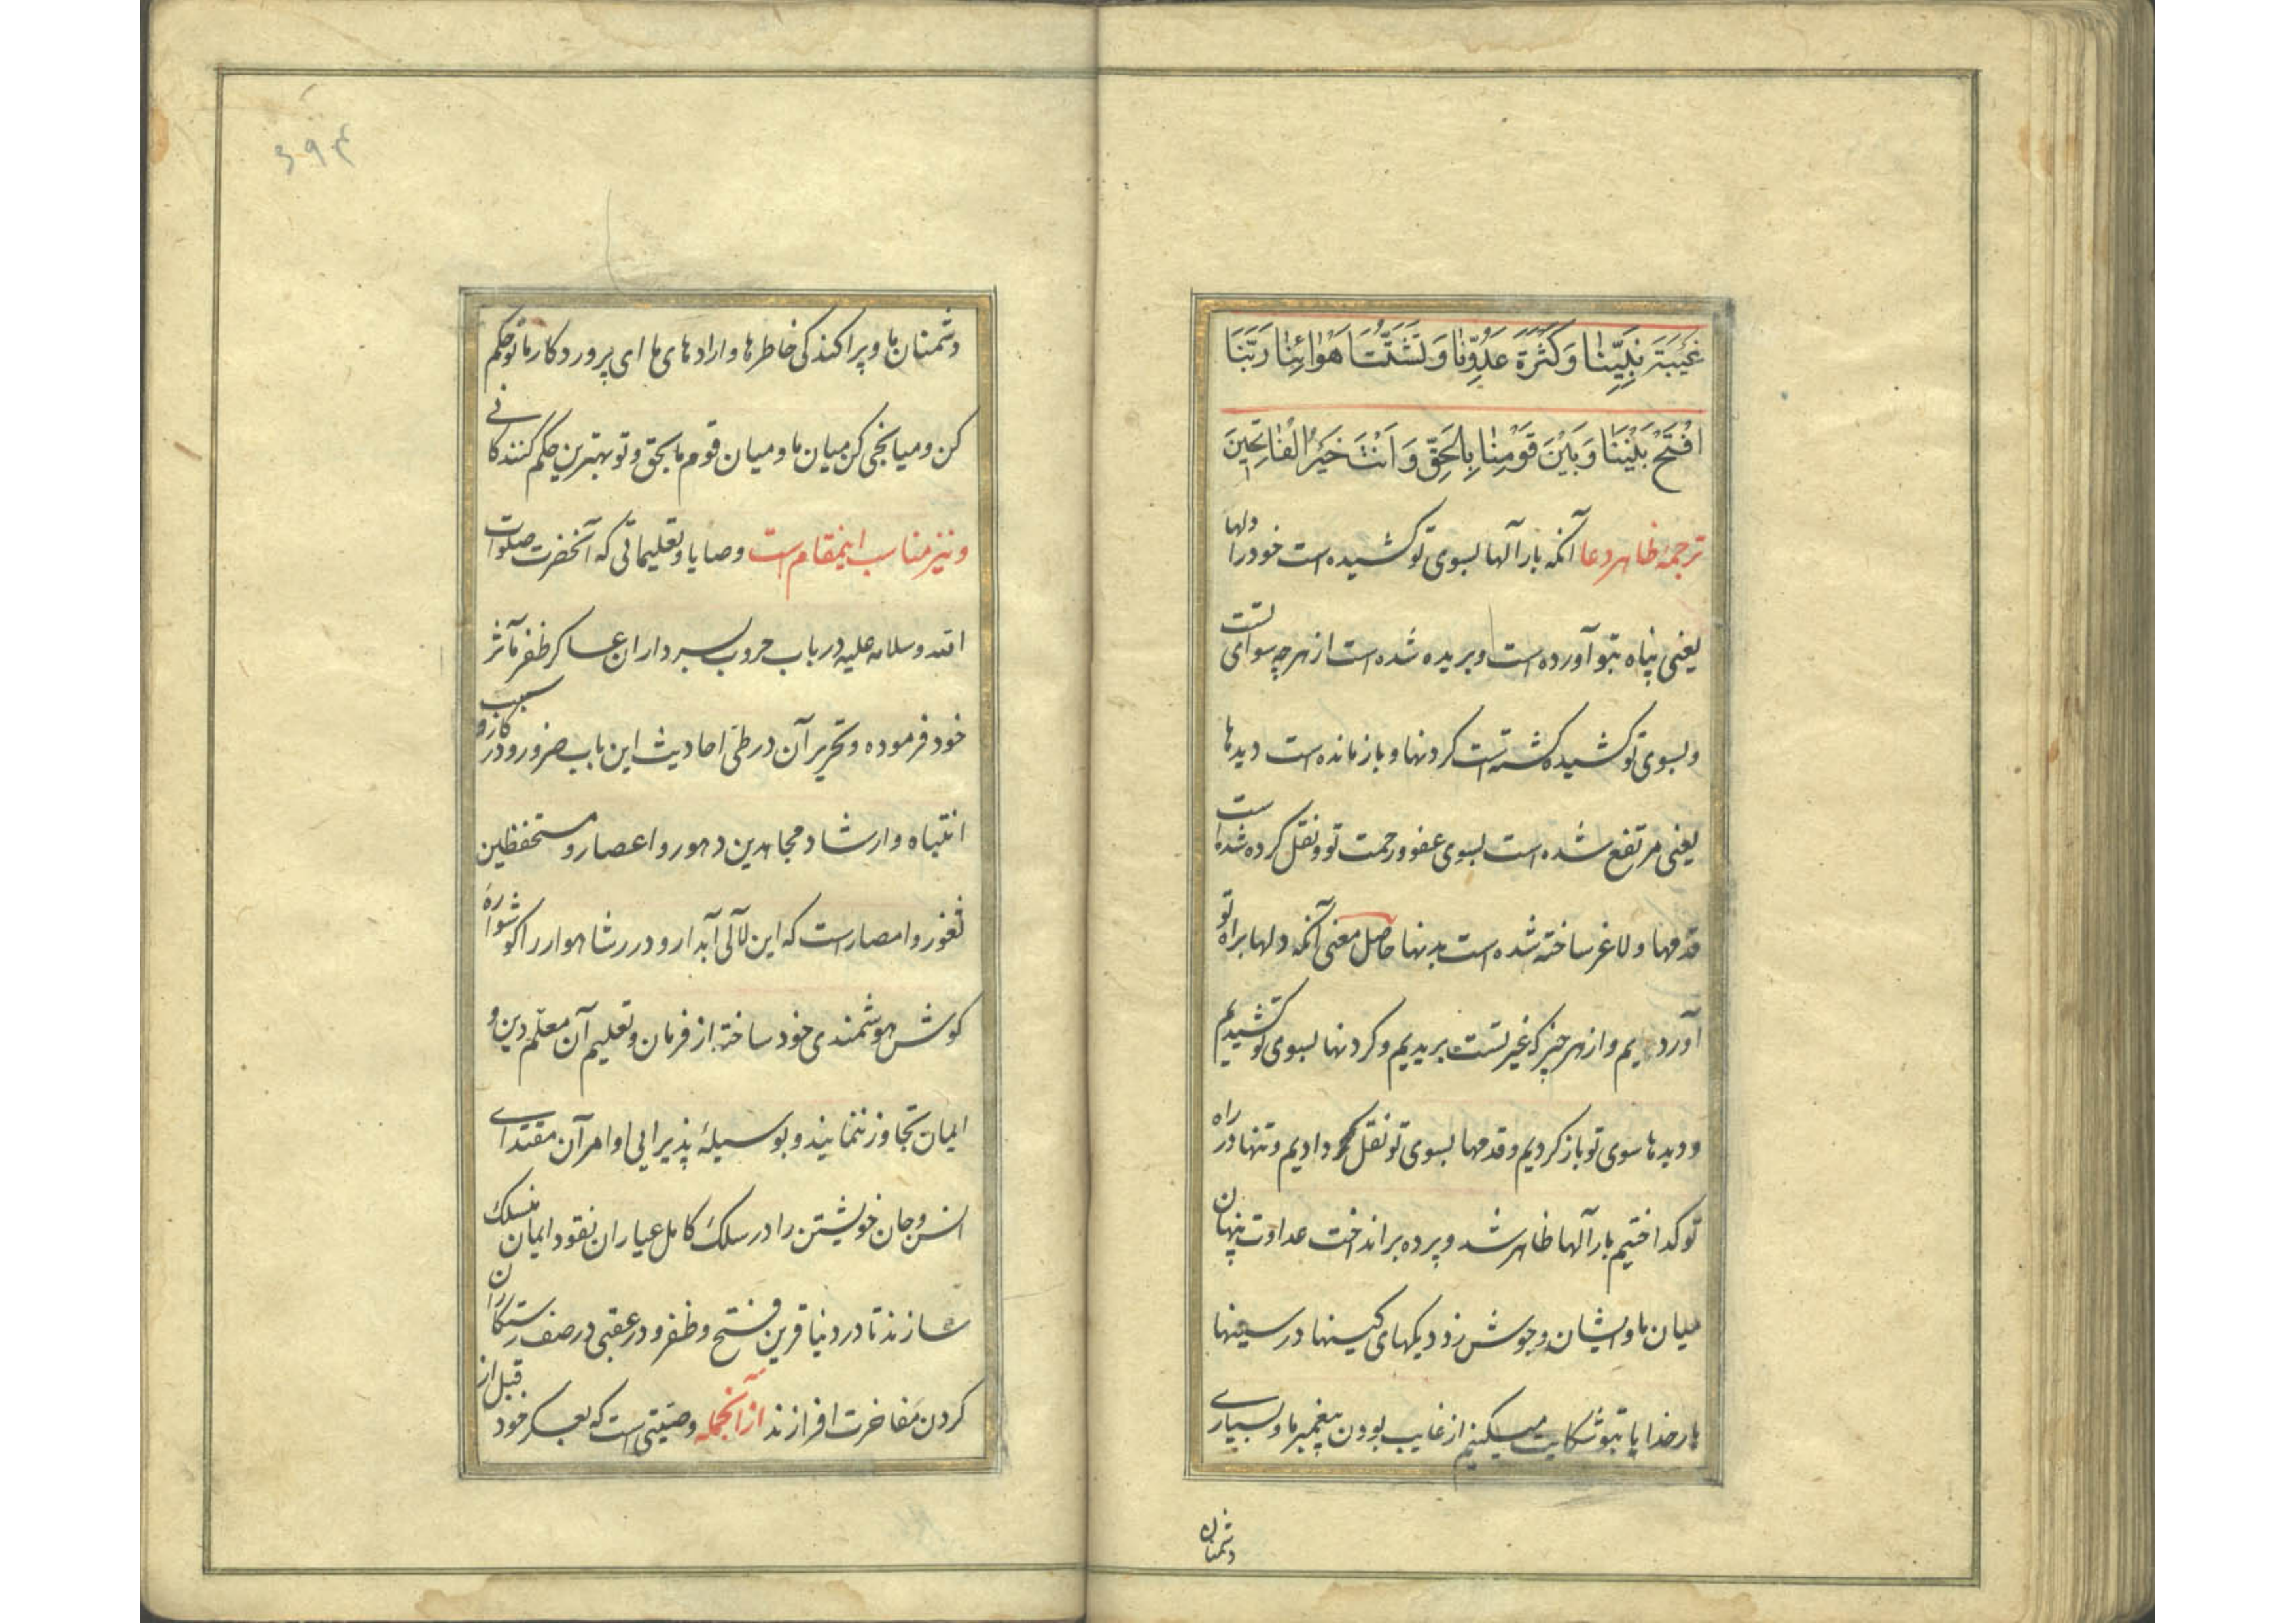 غَيْبَةَ نَبِيِّنَا وَكَثْرَةَ عَدُوِّنَا وَتَشَتُّتَ اَهْوَائِنَا رَبَّنَا
افْتَحْ بَيْنَنَا وَبَيْنَ قَوْمِنَا بِالْحَقِّ وَاَنْتَ خَيْرُ الْفَاتِحِينَ
ترجمهٔ ظاهر دعا آنکه بارالها بسوی تو کشیده است خود را دلها
یعنی پناه بتو آورده است و بریده شده است از هر چه سوای تست
و بسوی تو کشیده کشته است کردنها و باز مانده است دیدها
یعنی مرتفع شده است بسوی عفو و رحمت تو و نقل کرده شده است
قدمها و لاغر ساخته شده است بدنها حاصل معنی آنکه دلها براه تو
آوردیم و از هر چیز که غیر تست بریدیم و کردنها بسوی تو کشیدیم
و دیدها سوی تو باز کردیم و قدمها بسوی تو نقل دادیم و تنها در راه
تو کداختیم بارالها ظاهر شد و پرده برانداخت عداوت پنهان
میان ما و ایشان و جوش زد دیکهای کینها در سینها
بار خدایا بتو شکایت میکنیم از غایب بودن پیغمبر ما و بسیاری
دشمنان
۳۹۴
دشمنان ما و پراکندکی خاطرها و ارادهای ما ای پروردکار ما تو حکم
کن و میانجی کن میان ما و میان قوم ما بحق و تو بهترین حکم کنندکانی
و نیز مناسب اینمقام است وصایا و تعلیماتی که آنحضرت صلوات
الله و سلامه علیه در باب حروب بسرداران عساکر ظفر مآثر
خود فرموده و تحریر آن در طی احادیث این باب ضرور و در کار و سبب
انتباه و ارشاد مجاهدین دهور و اعصار و مستحفظین
ثغور و امصار است که این لآلی آبدار و درر شاهوار را کوشوارهٔ
کوش هوشمندی خود ساخته از فرمان و تعلیم آن معلم دین و
ایمان تجاوز ننمایند و بوسیلهٔ پذیرایی اوامر آن مقتدای
انس و جان خویشتن را در سلک کامل عیاران نقود ایمان منسلک
سازند تا در دنیا قرین فتح و ظفر و در عقبی در صف رستکاران
کردن مفاخرت افرازند از آنجمله وصیتی است که بعسکر خود قبل از